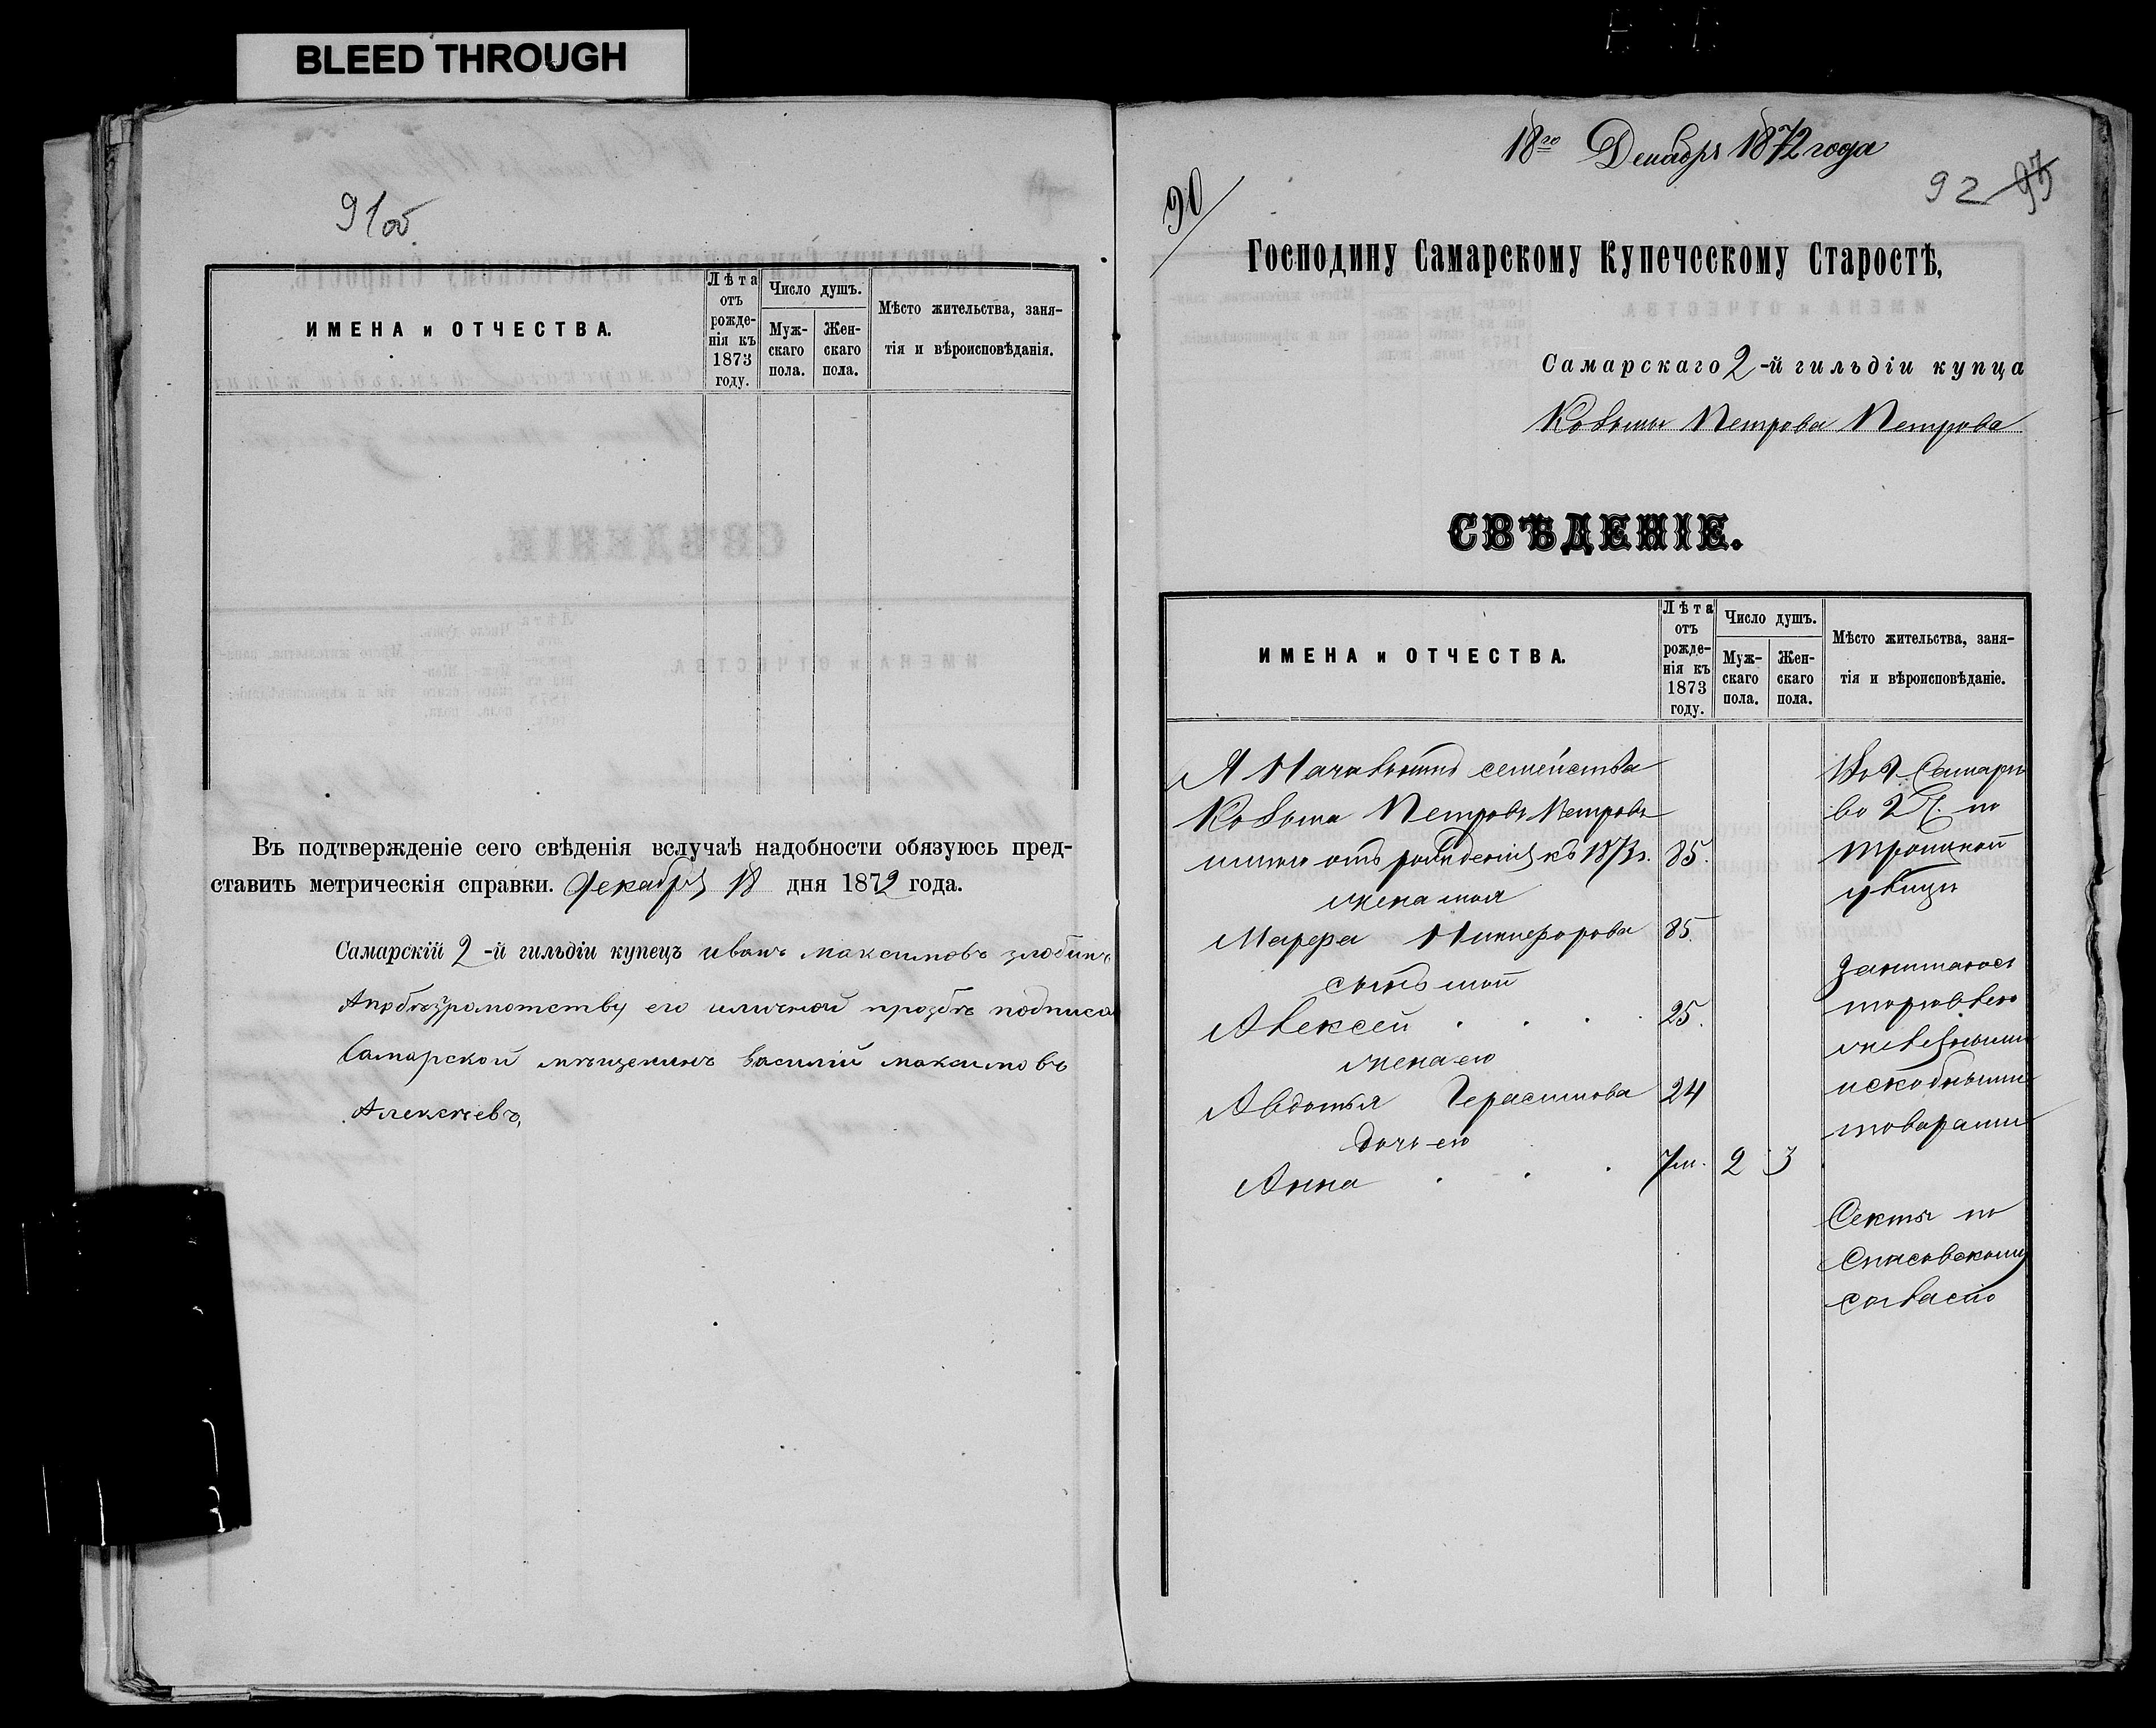 BLEED THROUGH
91об
ИМЕНА и ОТЧЕСТВА.
Лѣта отъ рожденія къ 1873 году.
Число душъ.
Мужскаго пола.
Женскаго пола.
Мѣсто жительства, занятія и вѣроисповѣданія.
Въ подтвержденіе сего свѣденія вслучаѣ надобности обязуюсь пред-
ставить метрическія справки. Декабря 18 дня 1872 года.
Самарскій 2-й гильдіи купецъ иванъ максимовъ злобинъ
Апобезграмотству его иличной прозбе подписа
Самарской мѣщенинъ василий максимовъ
Алексѣевъ,
18го Декабря 1872 года
90
92 93
Господину Самарскому Купеческому Старостѣ,
Самарскаго 2-й гильдіи купца
Козьмы Петрова Петрова
СВѢДЕНІЕ.
ИМЕНА и ОТЧЕСТВА.
Лѣта отъ рожденія къ 1873 году.
Число душъ.
Мужскаго пола.
Женскаго пола.
Мѣсто жительства, занятія и вѣроисповѣданіе.
Я Начальникъ семейства
Козьма Петровъ Петровъ
отъ рожденія къ 1873 г. 85.
жена моя
Марфа Никифорова 85.
сынъ мой
Алексей 25.
жена его
Авдотья Герасимова 24
дочь его
Анна 7м. 2 3
Въ г. Самаре
во 2 Ч. по
троицкой
улице
Занимаюсь
торговлею
желѣзными
искобяными
товарами
Секты по
Спасовскому
согласію